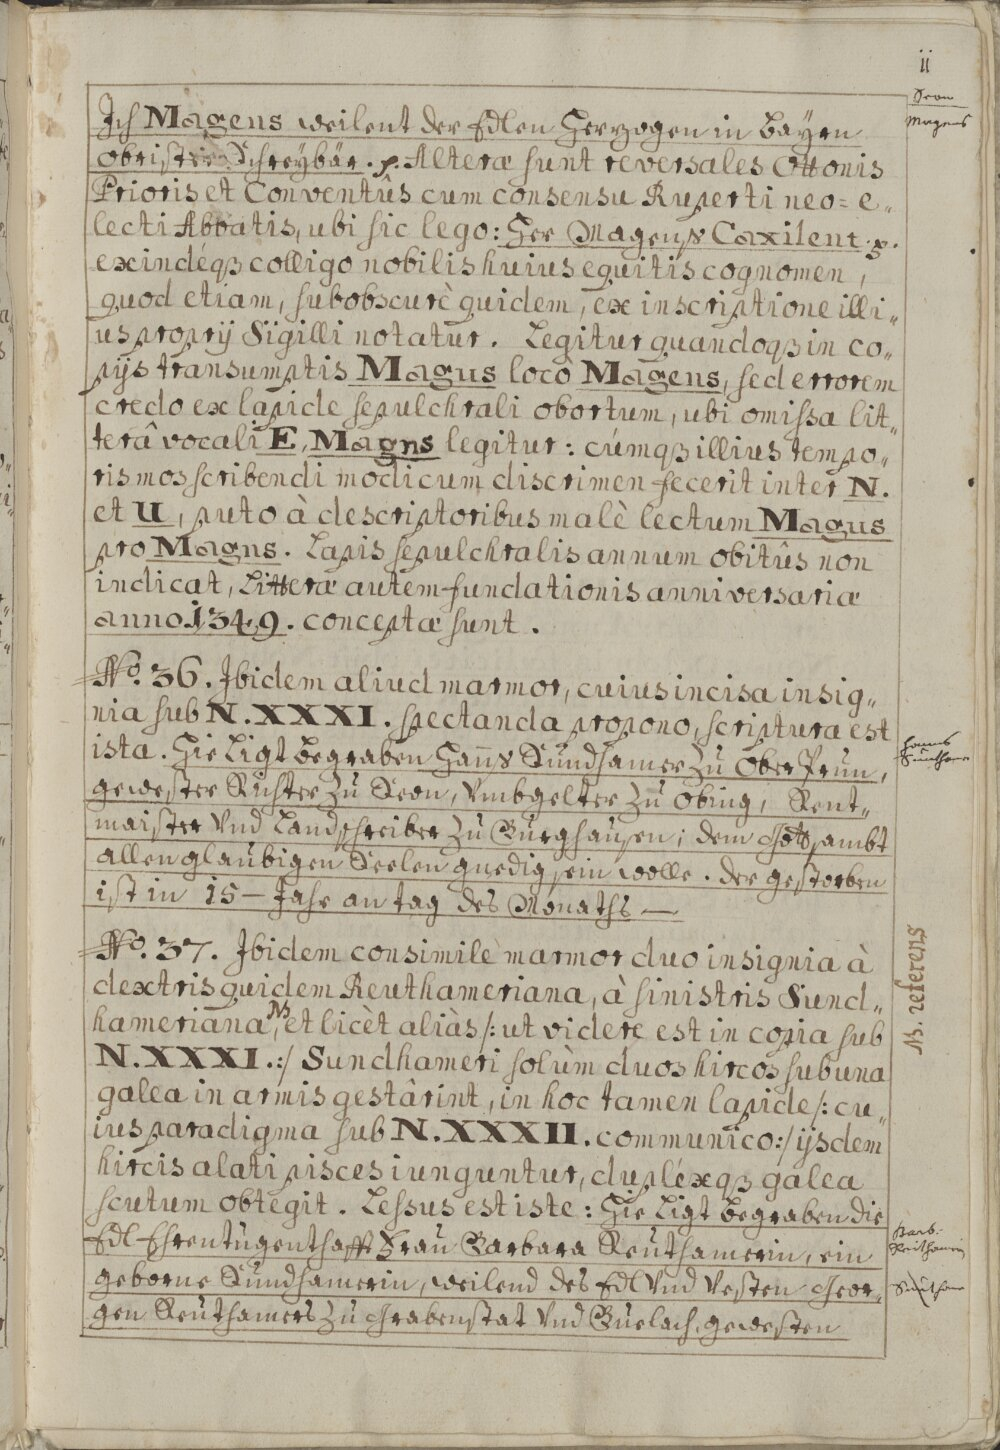 ii
Seon
Magens
Ich Magens weilent der Edlen Herzogen in Bayrn
obrister Schreybär. p. Alteræ sunt reversales Ottonis
Prioris et Conventûs cum consensu Ruperti neo=e„
lecti Abbatis, ubi sic lego: Her Magens Caxilent. p.
exindéqꝫ colligo nobilis huius equitis cognomen,
quod etiam, subobscurè quidem, ex inscriptione illi„
us proprÿ Sigilli notatur. Legitur quandoqꝫ in co„
pÿs transumptis Magus loco Magens, sed errorem
credo ex lapide sepulchrali obortum, ubi omissa lit„
terâ vocali E, Magns legitur: cúmqꝫ illius tempo„
ris mos scribendi modicum discrimen fecerit inter N.
et U, puto à descriptoribus malè lectum Magus
pro Magns. Lapis sepulchralis annum obitûs non
indicat, Litteræ autem fundationis anniversariæ
anno 1349. conceptæ sunt.
No. 36. Ibidem aliud marmor, cuius incisa insig„
nia sub N. XXXI. spectanda propono, scriptura est
ista. Hie Ligt begraben Hanns Sundhamer zu Ober Prun,
Hanns
Sunthamer
gewester Richter zu Seon, Vmbgelter zu Obing, Rent„
maister Vnd Landschreiber zu Burghausen; dem Gott sambt
allen glaubigen Seelen gnedig sein wolle. der gestorben
ist in 15 — Jahr an tag des Monaths —
No. 37. Ibidem consimile marmor duo insignia à
dextris quidem Reuthameriana, à sinistris Sund„
hameriana, NB et licèt aliàs /: ut videre est in copia sub
NB. referens
N. XXXI. :/ Sundhameri solùm duos hircos sub una
galea in armis gestârint, in hoc tamen lapide /: cu„
ius paradigma sub N. XXXII. communico :/ ÿsdem
hircis alati pisces iunguntur, dupléxqꝫ galea
scutum obtegit. Lessus est iste: Hie Ligt begraben die
Edl Ehrentugenthafft Frau Barbara Reuthamerin, ein
Barb.
Reithamerin
geborne Sundhamerin, weilend des Edl Vnd Vesten Geor„
gen Reuthamers zu Grabenstat Vnd Buelach, gewesten